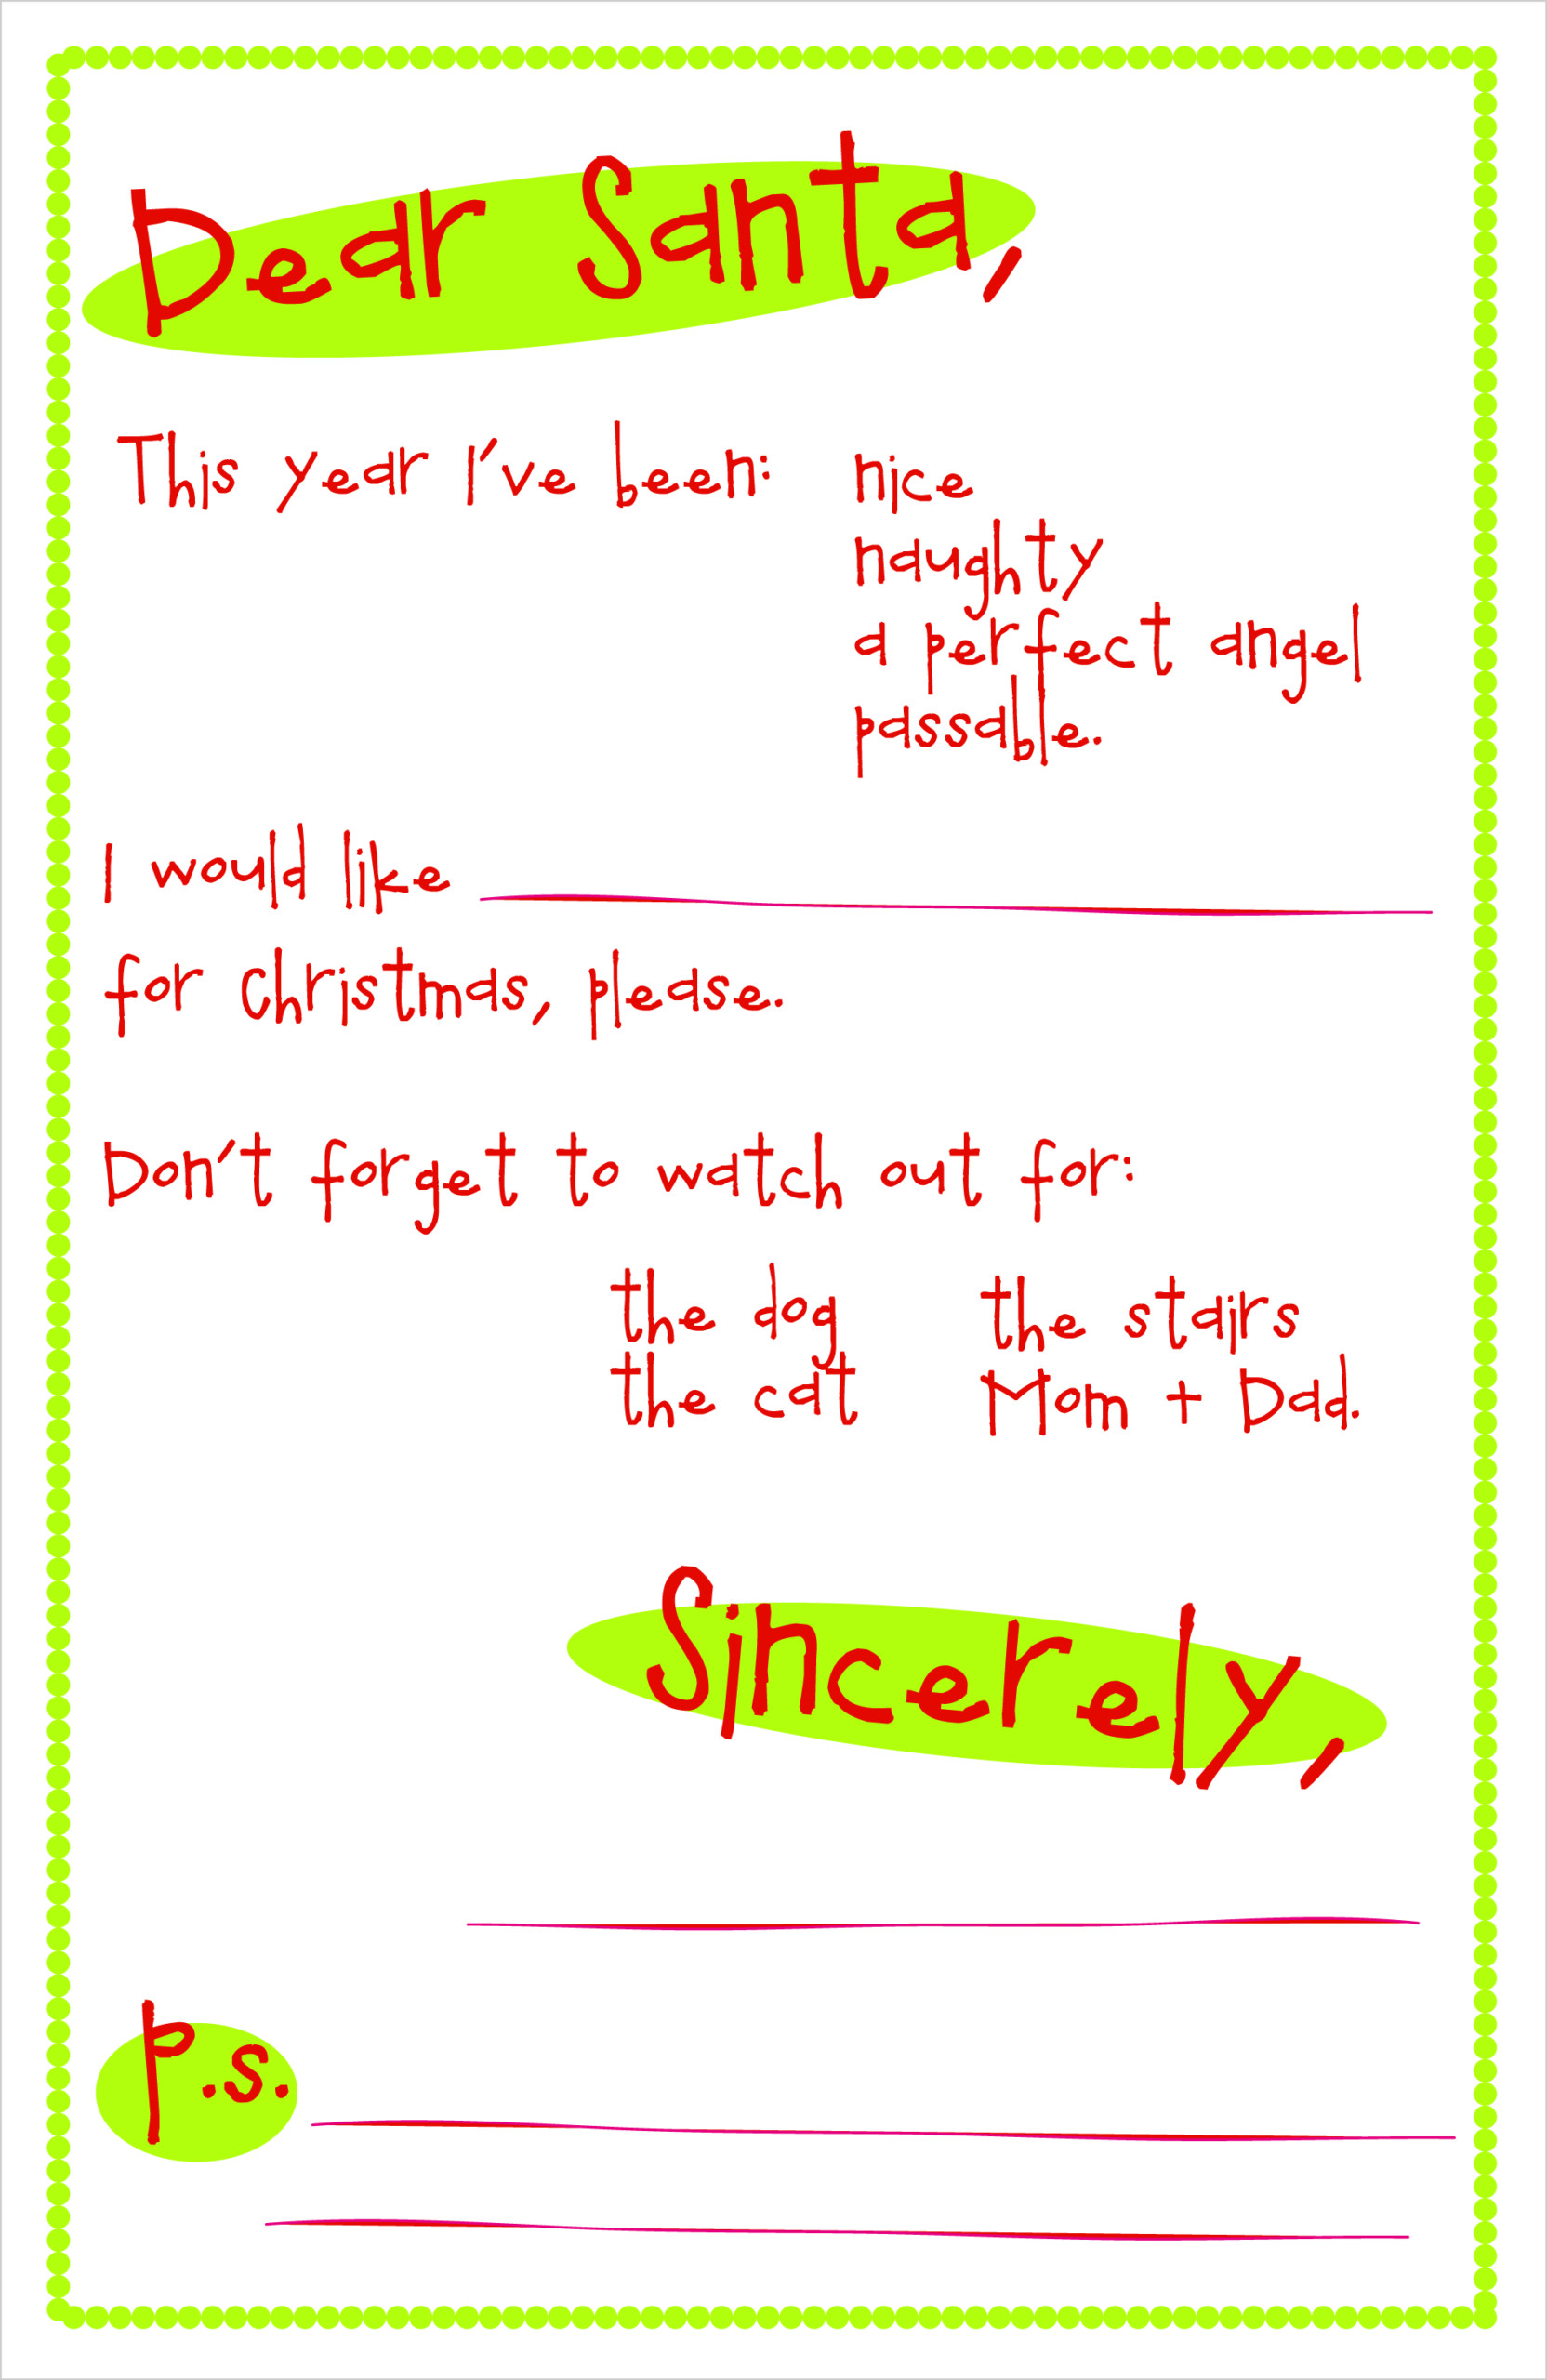 Dear Santa,
This year I've been: nice
naughty
a perfect angel
passable.
I would like
for Christmas, please.
Don't forget to watch out for:
the dog the stairs
the cat Mom + Dad.
Sincerely,
P.S.